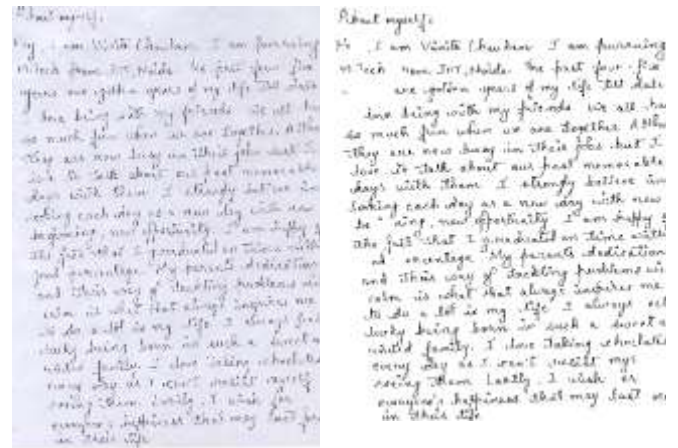 About myself:
Hy, I am Vinita Chauhan I am pursuing
M.Tech from JIIT, Noida. The past four-five
years are golden years of my life till date
love being with my friends we all have
so much fun when we are together. Altho
they are now busy in their jobs but I
love to talk about our past memorable
days with them I strongly believe in
taking each day as a new day with new
beginning, new opportunity I am happy
the fact that I graduated on time with
good percentage. My parents dedication
and their way of tackling problems
calm is what that always inspires me
to do a lot in my life I always feel
lucky being born in such a sweet a
united family. I love taking chocolates
every day as I can't resist myself
seeing them Lastly, I wish for
everyone's happiness that may last
in their life

About myself:
I am Vinita Chauhan I am pursuing
M.Tech from JIIT, Noida. The past four-five
are golden years of my life till date
love being with my friends we all ha
so much fun when we are together. Altho
they are now busy in their jobs but I
love to talk about our past memorable
days with them I strongly believe in
taking each day as a new day with new
new opportunity I am happy
the fact that I graduated on time with
percentage My parents dedication
and their way of tackling problems wi
calm is what that always inspires me
to do a lot in my life I always
lucky being born in such a sweet a
united family. I love taking chocolates
every day as I can't resist mys
seeing them Lastly, I wish
everyone's happiness that may last
in their life